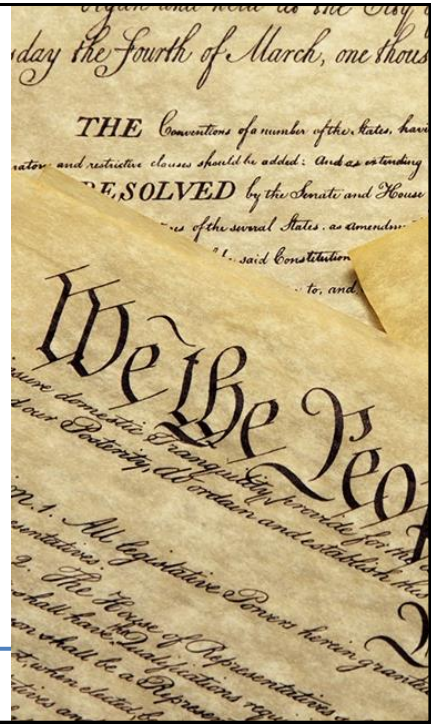 day the Fourth of March, one thous
THE Conventions of a number of the States, havi
and restrictive clauses should be added: And as extending
RESOLVED by the Senate and House
of the several States, as amendm
said Constitution
to, and,
We the Peo
nsure domestic Tranquility, provide for the
d our Posterity, do ordain and establish this
n. 1. All legislative Powers herein grante
esentatives.
2. The House of Representatives
shall have Qualifications requi
on shall be a Represen
when elected, b